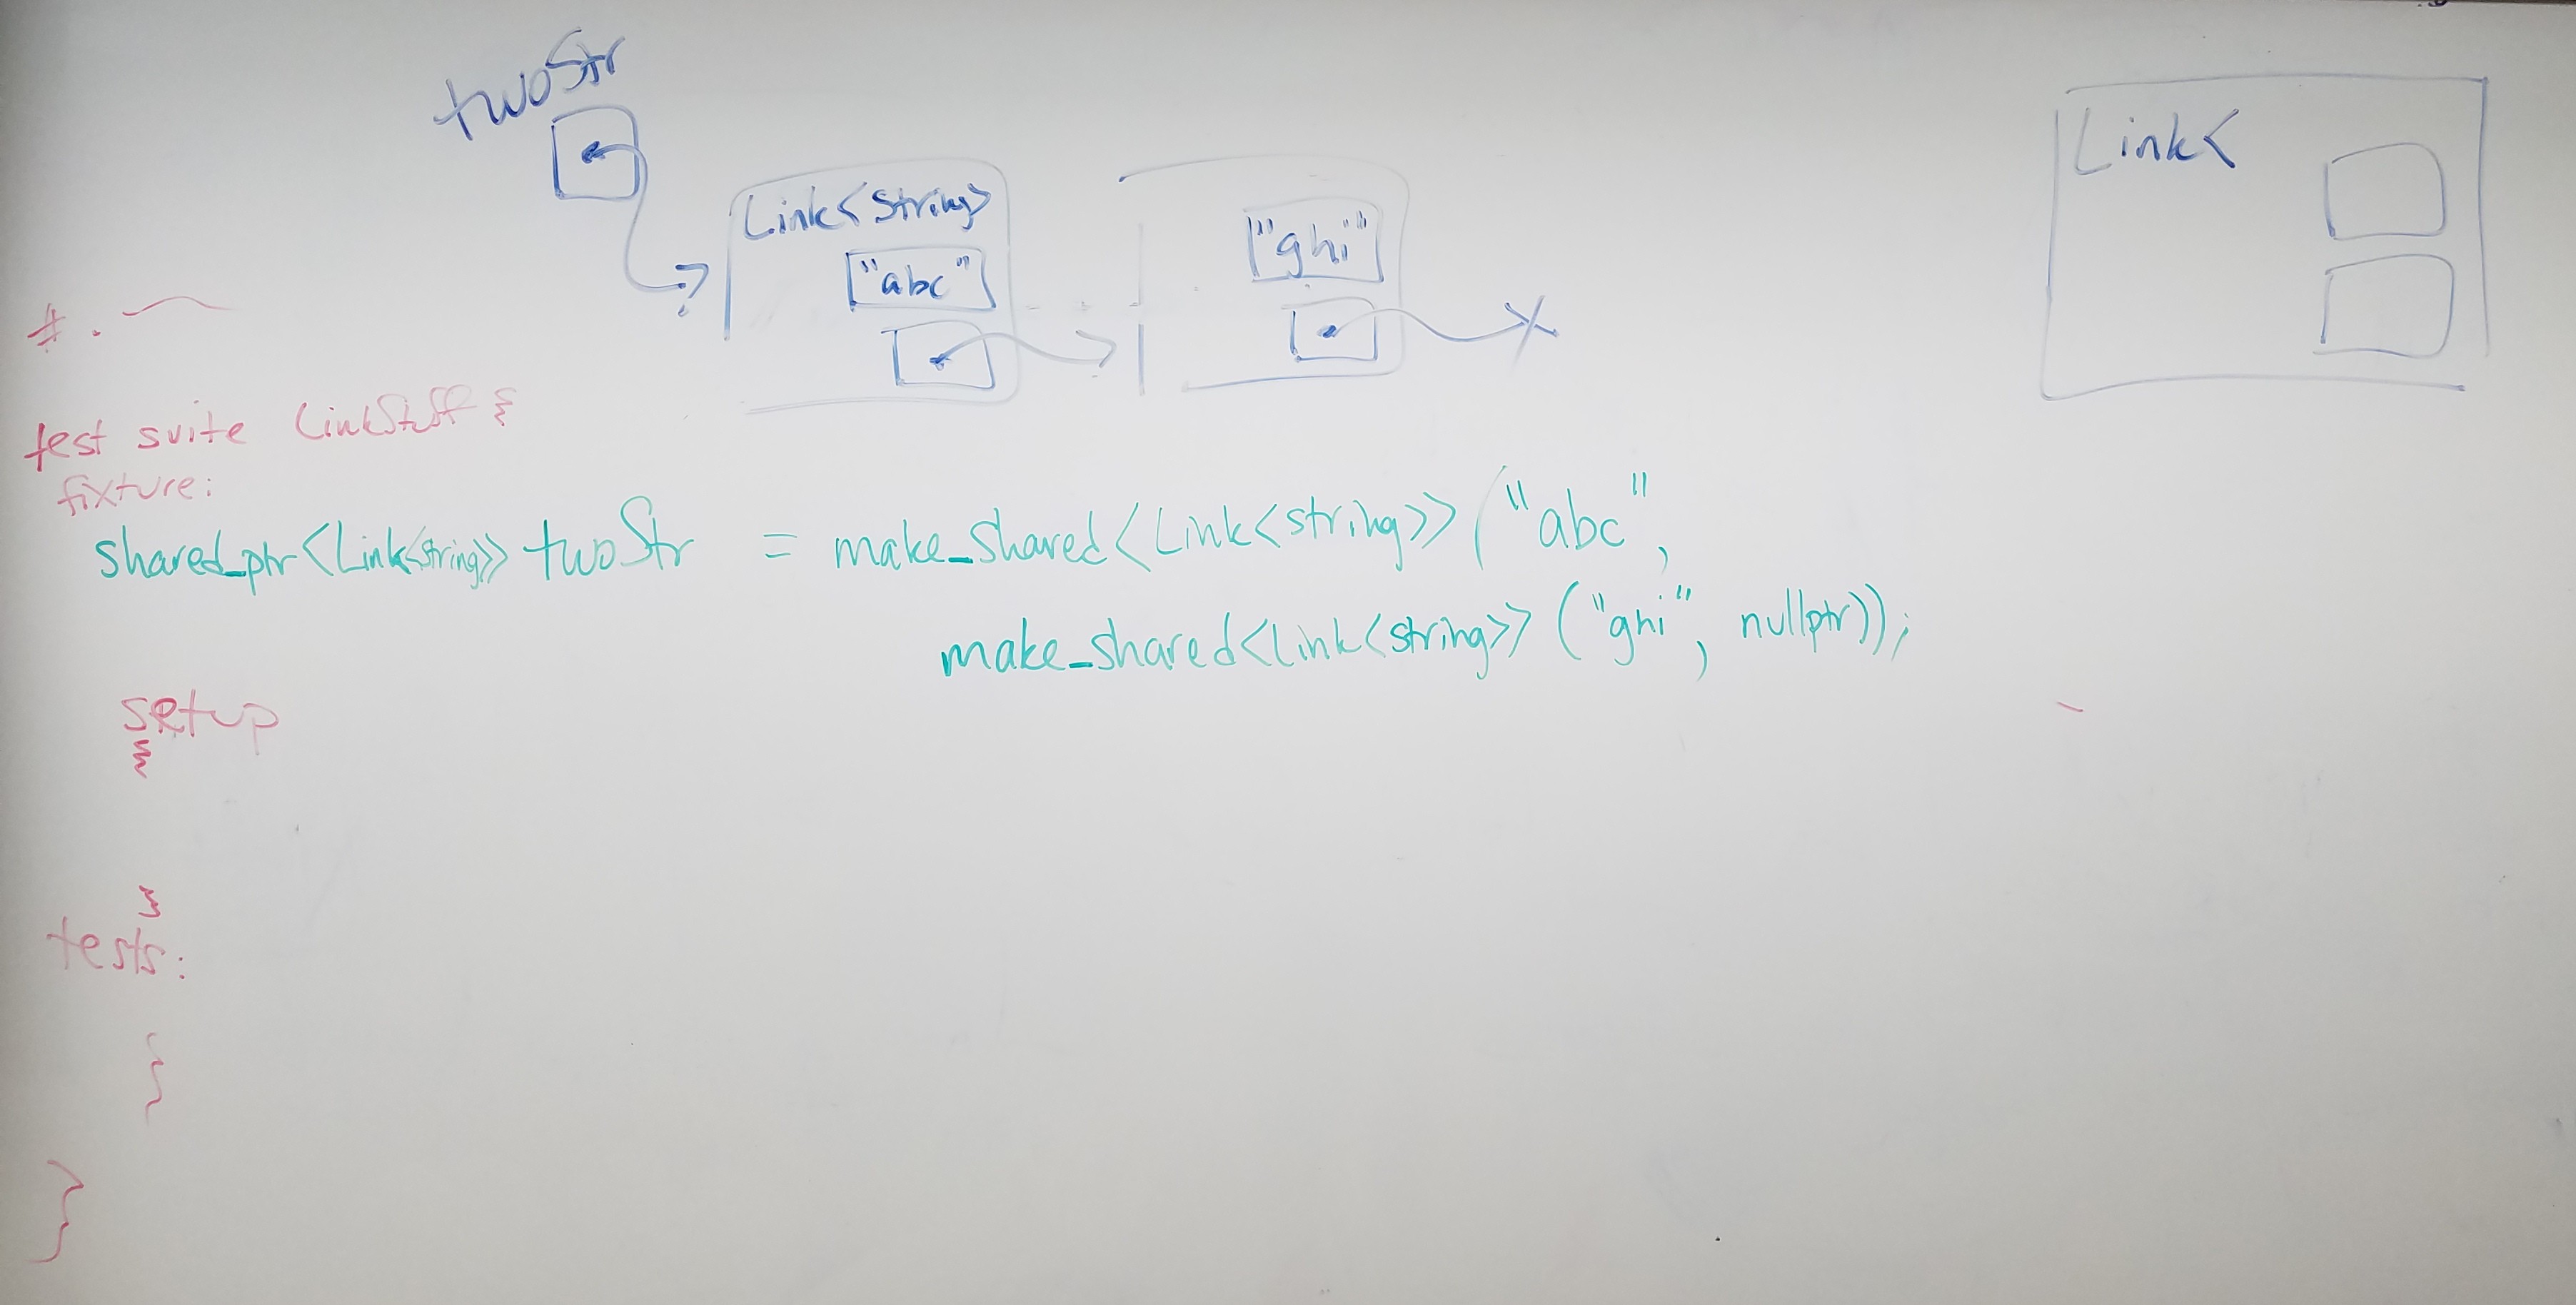 twoStr
Link<
Link<String>
"abc"
"ghi"
#.
test suite LinkStuff {
fixture:
shared_ptr<Link<string>> twoStr = make_shared<Link<string>>("abc",
make_shared<Link<string>>("ghi", nullptr));
setup
{
}
tests:
}
}